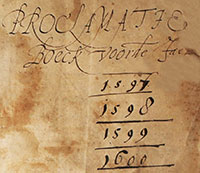 PROCLAMATIE
Boeck voorde Jae
1597
1598
1599
1600